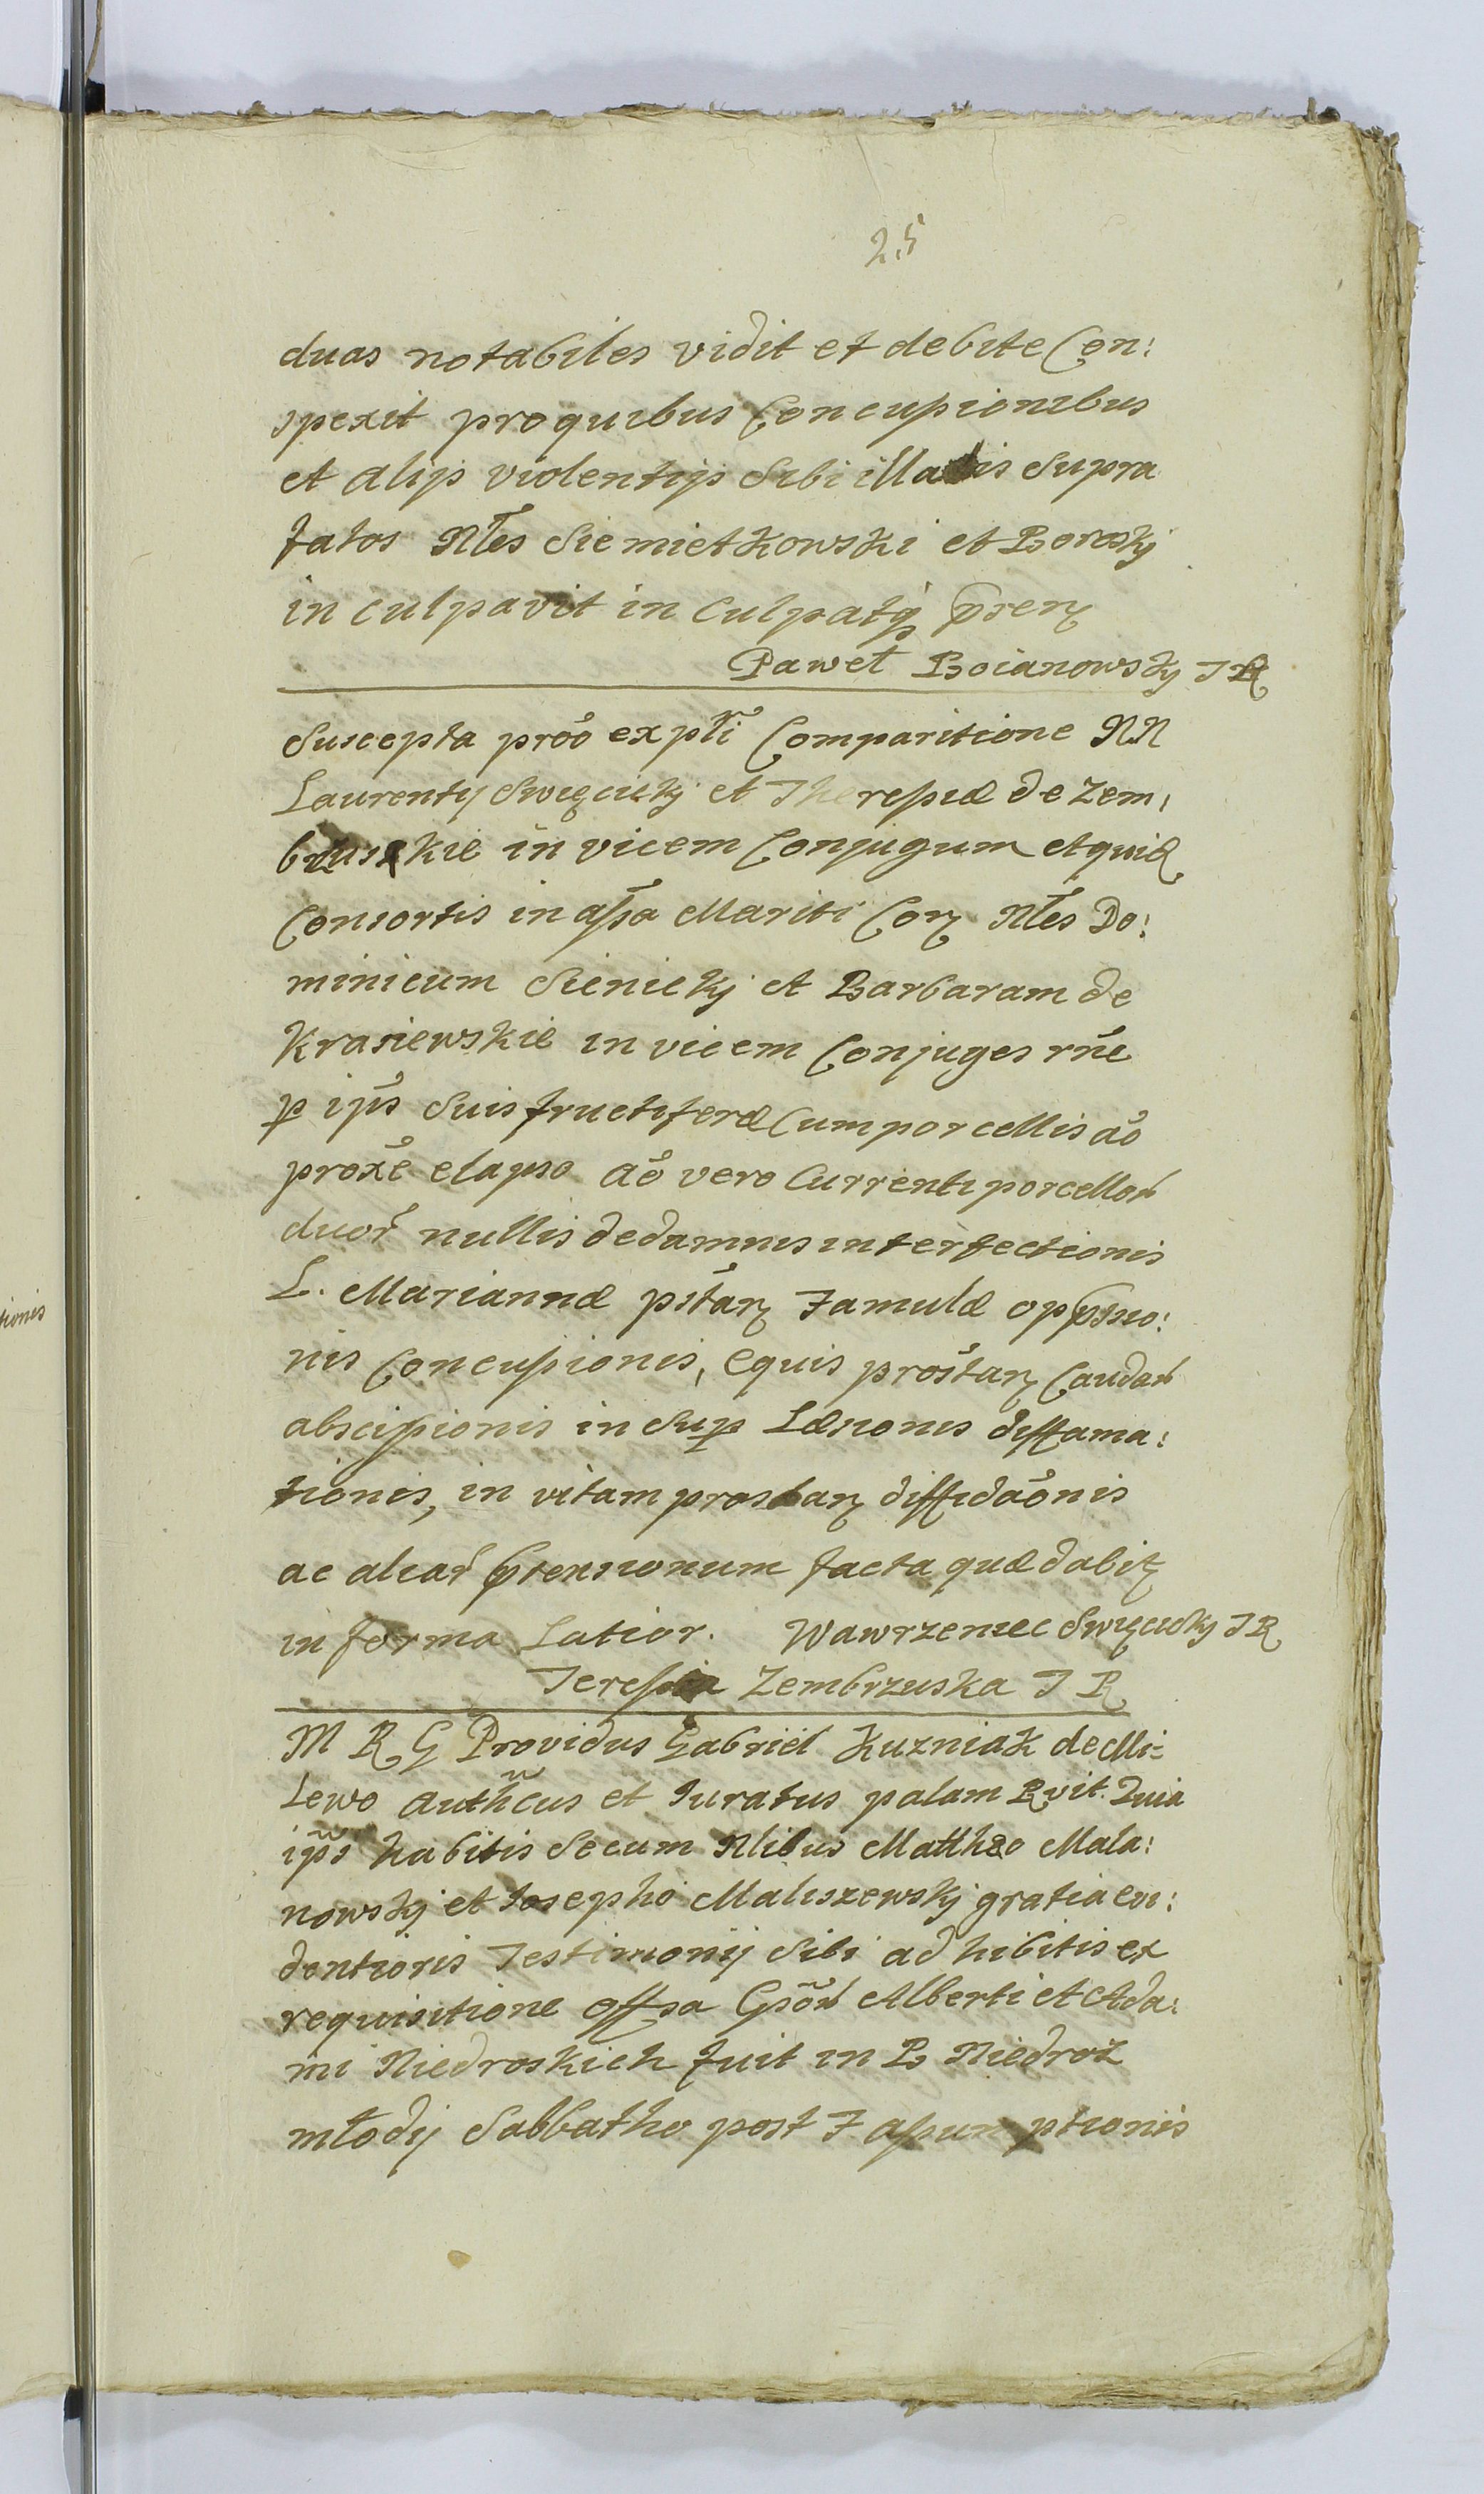 25
duas notabiles vidit et debite Con:
spexit pro quibus Concussionibus
et alijs violentijs Sibi illatis Supra
fatos Nles Siemietkowski et Boroskj
in culpavit in culpatq prenz
Paweł Boianowskj J R
Suscepta proõ ex pti Comparitione NN
Laurentij Swięcickj et Theressiæ de Zem:
bruskie in vicem Conjugum et quid
Consortis in assa Mariti Corz Nles Do:
minicum Sienickj et Barbaram de
Krasiewskie in vicem Conjuges rñe
p ips Suis fructiferæ Cum porcellis aõ
proxe elapso aõ vero Currenti porcellor
duor nullis dedamnis interfectionis
L. Mariannæ pstarz Famulæ oppssio:
nis Concussionis, equis prostarz Caudar
abscissionis in Sup Læsionis diffama:
tionis, in vitam prostarz diffidaõnis
ac aliar prensionum facta quæ dabitz
in forma Latior. Wawrzeniec Swięcickj J R
Teressia Zembrzuska J R
M R G Providus Gabriel Kuzniak de Mi:
lewo authcus et Juratus palam Rvit. Quia
ips habitis Secum Nlibus Matthæo Mala:
nowskj et Josepho Maliszewskj gratia evi:
dentioris Testimonij Sibi ad hibitis ex
requisitione offsa Gsor Alberti et Ada:
mi Niedroskich fuit in B Niedroż
młody Sabbatho post F assumptionis
tionis